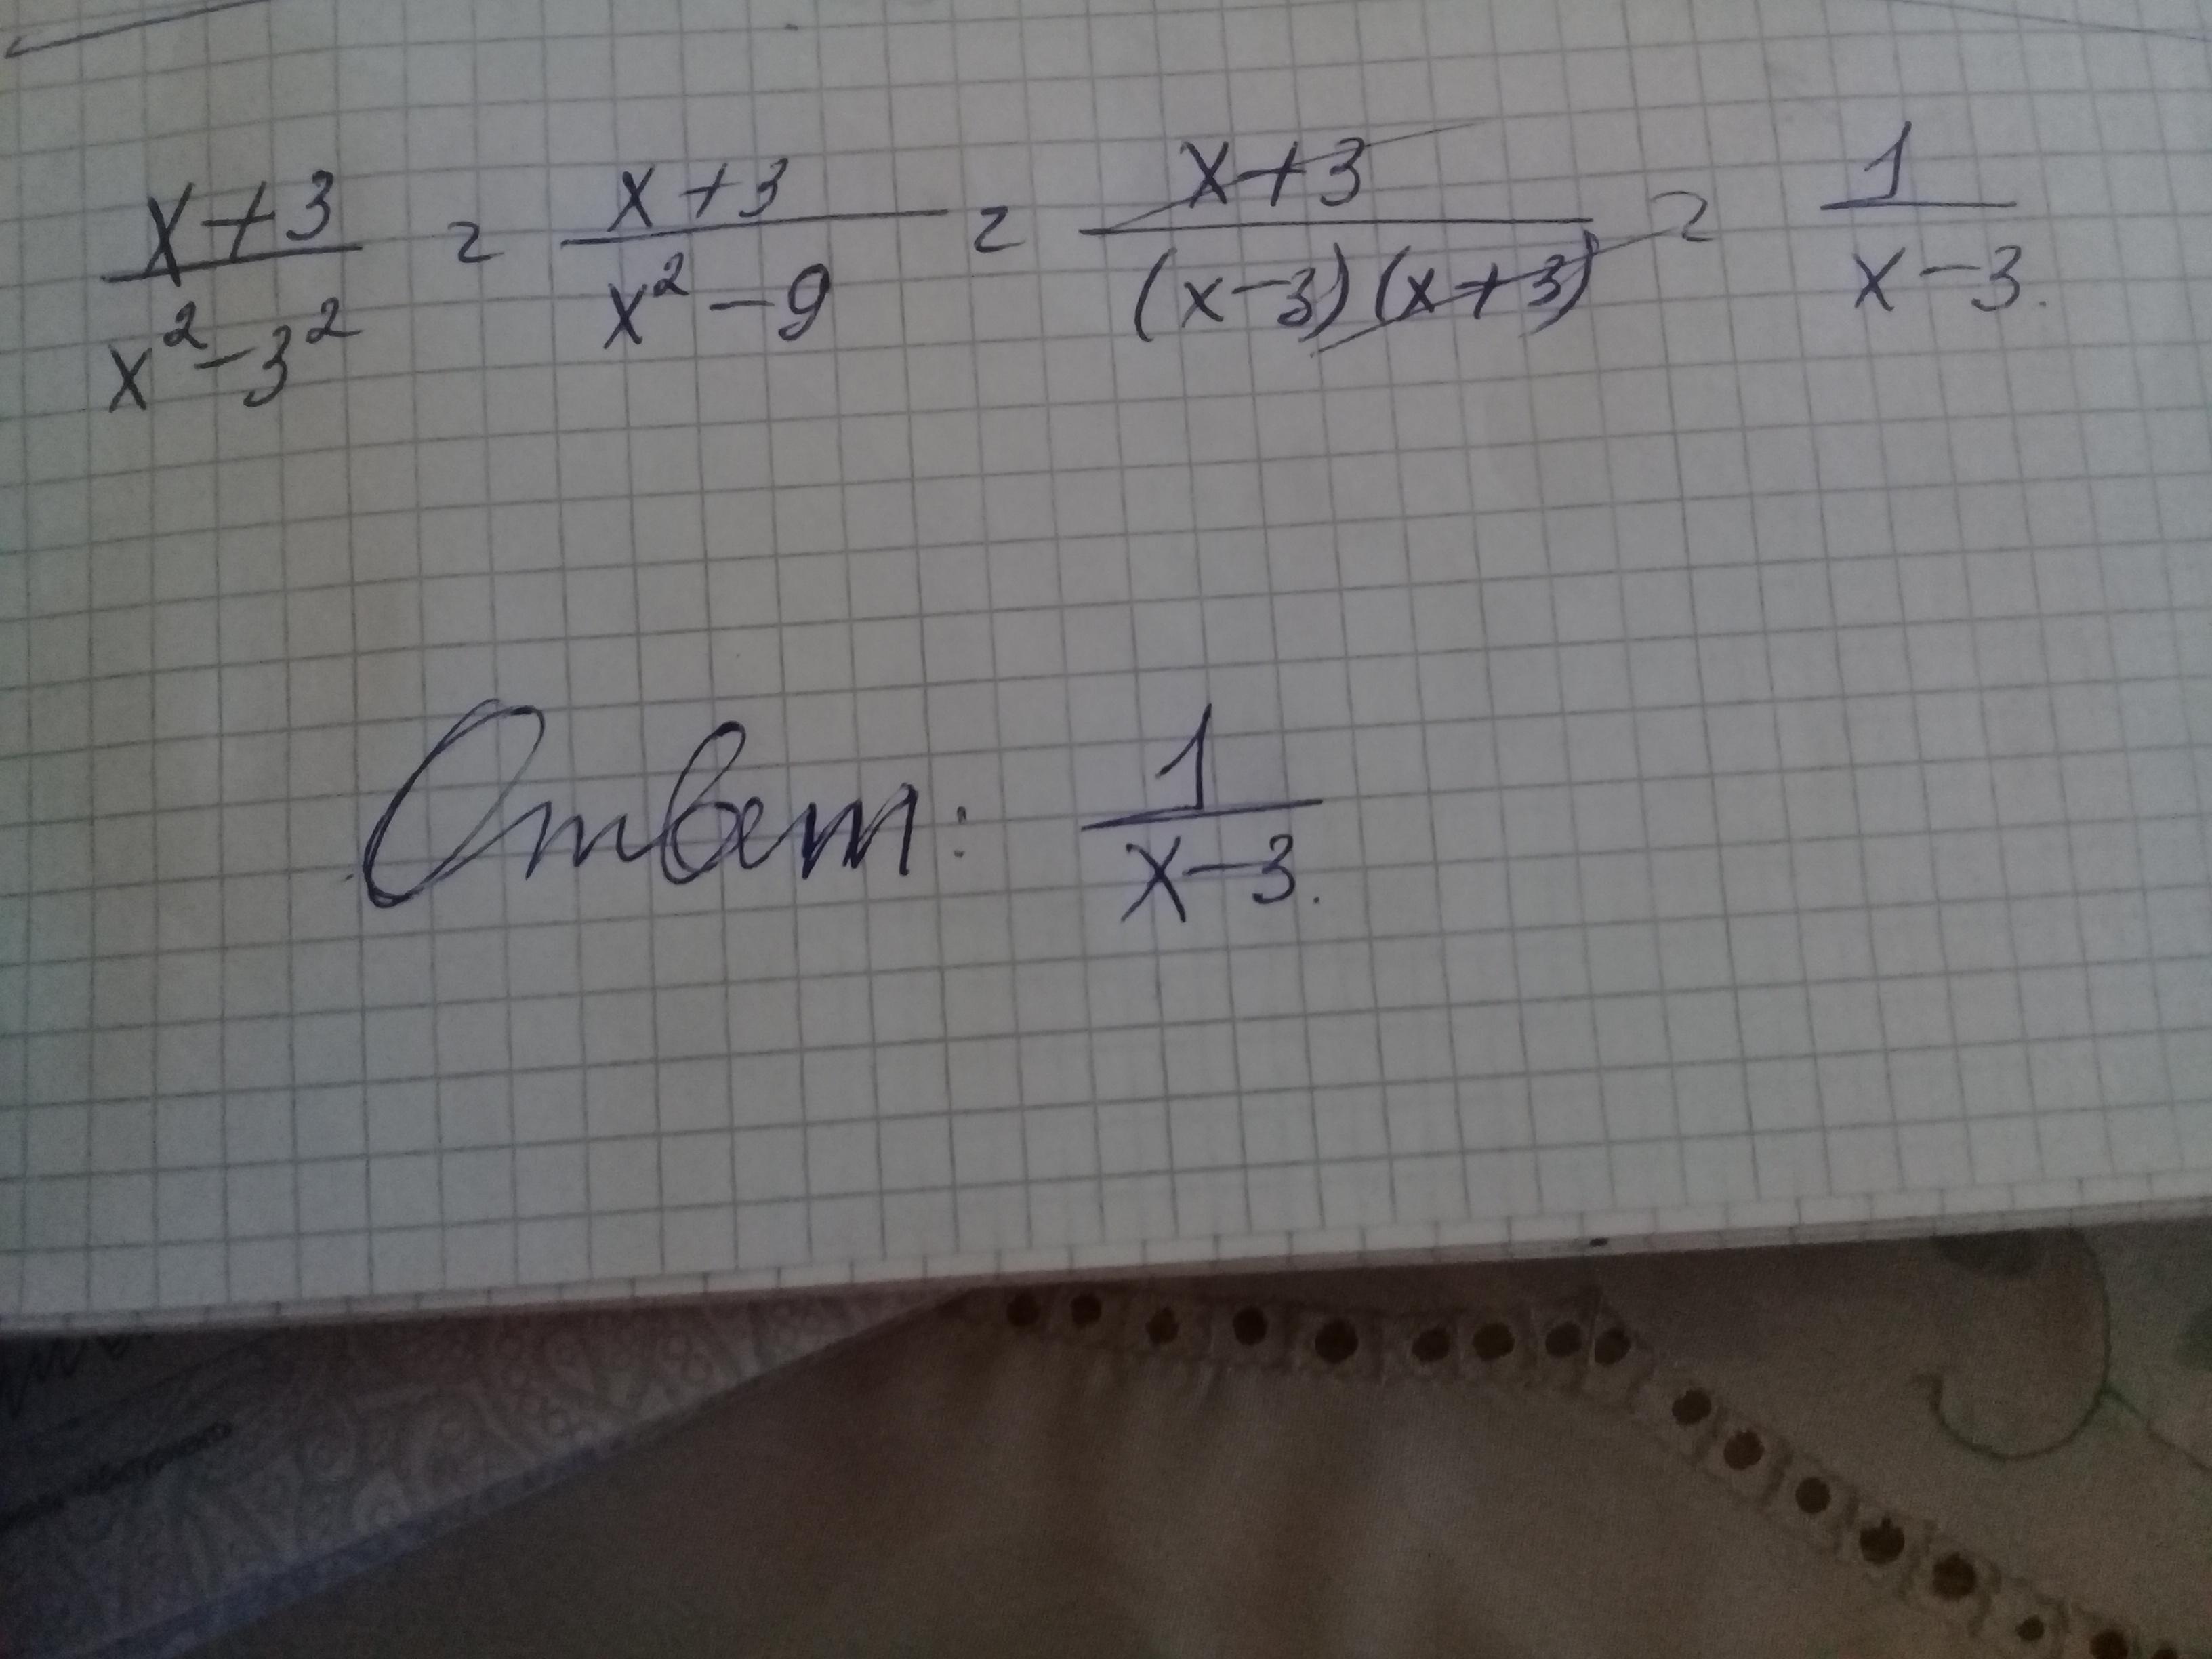 x+3/x²-3² = x+3/x²-9 = x+3/(x-3)(x+3) = 1/x-3.
Ответ: 1/x-3.